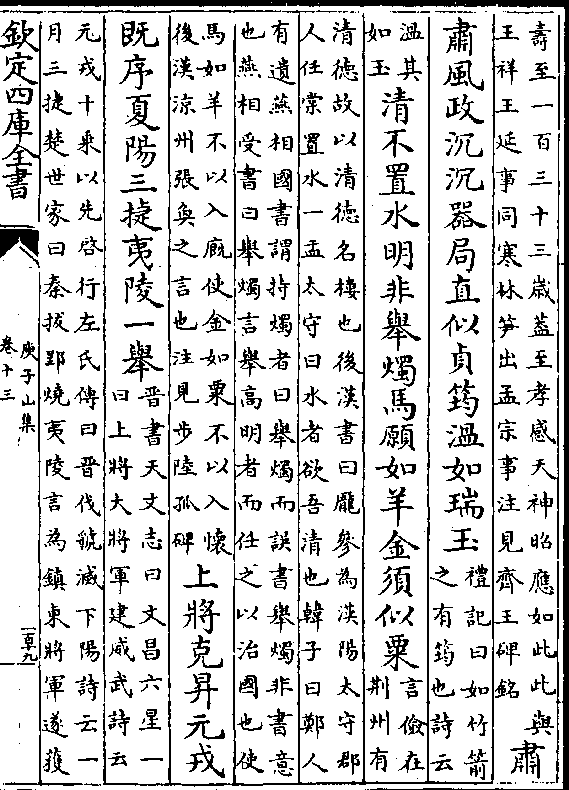 壽至一百三十三歲葢至孝感天神昭應如此此與
王祥王延事同寒林笋出孟宗事注見齊王碑銘
肅
肅風政沉沉器局直似貞筠溫如瑞玉
禮記曰如竹箭
之有筠也詩云
溫其
如玉
清不置水明非舉燭馬願如羊金須似粟
言儉在
荆州有
清德故以清德名樓也後漢書曰龎參為漢陽太守郡
人任棠置水一盂太守曰水者欲吾清也韓子曰鄭人
有遺燕相國書謂持燭者曰舉燭而誤書舉燭非書意
也燕相受書曰舉燭言舉高明者而任之以治國也使
馬如羊不以入廐使金如粟不以入懷
後漢涼州張奐之言也注見步陸孤碑
上將克昇元戎
既序夏陽三捷夷陵一舉
晉書天文志曰文昌六星一
曰上將大將軍建威武詩云
元戎十乘以先啓行左氏傳曰晉伐虢滅下陽詩云一
月三捷楚世家曰秦拔郢燒夷陵言為鎮東將軍遂獲
欽定四庫全書
庾子山集
卷十三